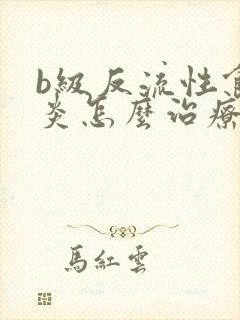 b級反流性
炎怎麼治療
馬紅雲